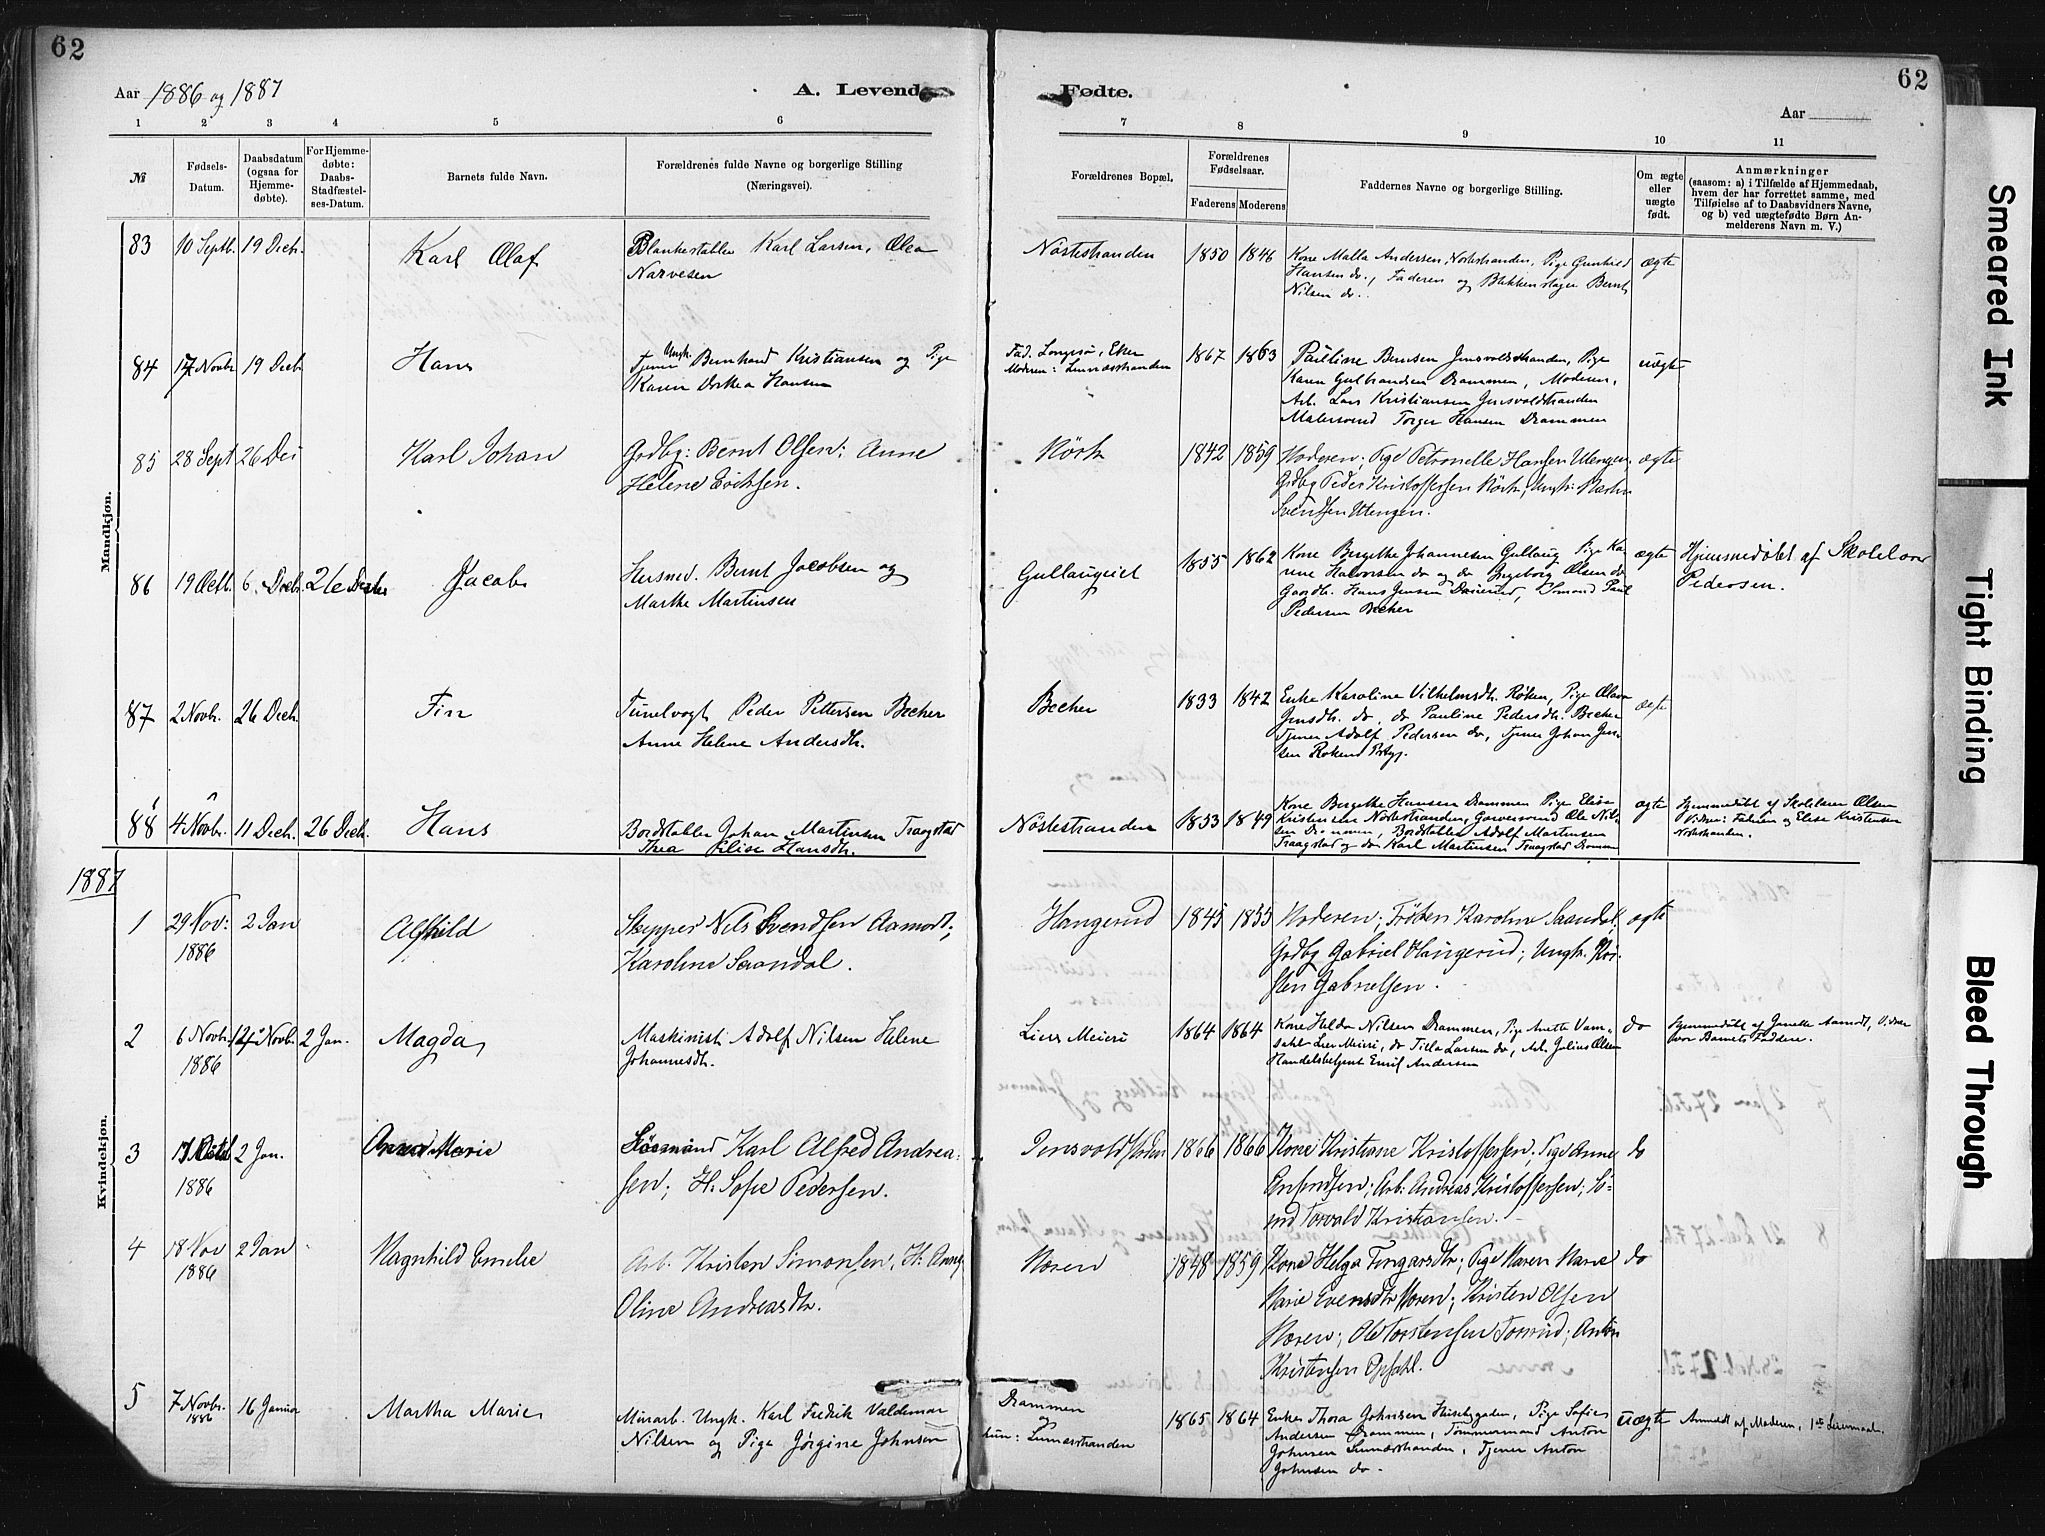 62
62
Aar 1886 og 1887
A. Levende
Fødte.
Aar
1 2 3 4 5 6 7 8 9 10 11
№
Fødsels-
Datum.
Daabsdatum
(ogsaa for
Hjemme-
døbte).
For Hjemme-
døbte:
Daabs-
Stadfæstel-
ses-Datum.
Barnets fulde Navn.
Forældrenes fulde Navne og borgerlige Stilling
(Næringsvei).
Forældrenes Bopæl.
Forældrenes
Fødselsaar.
Faderens Moderens
Faddernes Navne og borgerlige Stilling.
Om ægte
eller
uægte
født.
Anmærkninger
(saasom: a) i Tilfælde af Hjemmedaab,
hvem der har forrettet samme, med
Tilføielse af to Daabsvidners Navne,
og b) ved uægtefødte Børn An-
melderens Navn m. V.)
Mandkjøn.
83 10 Septb. 19 Decb. Karl Olaf
Karl Larsen, Olea
Narvesen
Nøstestranden 1850 1846
Kone Malla Andersen, Nøstestranden, Pige Gunhild
Hansen do., Faderen og Blikkenslager Bernt
Nilsen do.
ægte
84 17 Novbr 19 Decb Hans
Tjener Ungk. Bernhard Kristiansen og Pige
Karen Dorthea Hansen
1867 1863
Pauline Berntsen Jensvoldstranden, Pige
Karen Gulbrandsen Drammen, Moderen,
Arb. Lars Kristiansen Jensvoldstranden
Malersvend Torger Hansen Drammen
uægte
85 28 Sept 26 Dec Karl Johan
Grdbg: Bernt Olsen; Anne
Helene Erichsen.
1842 1859
Moderen; Pige Petronelle Hansen Utengen,
Grdbg Peder Kristoffersen
Svendsen Utengen.
ægte
86 19 Octb. 6. Decb. 26 Decbr Jacob
Husmd. Bernt Jacobsen og
Marthe Martinsen
Gullaugeiet 1855 1862
Kone Bergethe Johannesen Gullaug Pige Ka-
rine Halvorsen do og do Ingeborg Olsen do
Hans Jensen
Pedersen Becher
ægte
Hjemmedøbt af Skolelærer
Pedersen.
87 2 Novb. 26 Decb. Fin
Peder Pettersen Becher
Anne Helene Andersdtr.
Becher 1833 1842
Enke Karoline Vilhelmsdtr. Røken, Pige
Jensdtr. do, do Pauline Pedersdtr. Becher
Tjener Adolf Pedersen do, Tjener Johan Jen-
sen
ægte
88 4 Novbr. 11 Decb. 26 Decb. Hans
Bordstabler Johan Martinsen Traagstad
Thea Elise Hansdtr.
Nøstestranden 1853 1849
Kone Bergethe Hansen Drammen Pige Elise
Kristensen Nøstestranden, Garversvend Ole Nil-
sen Drammen, Bordstabler Adolf Martinsen
Traagstad og do Karl Martinsen Traagstad Drammen
ægte
Hjemmedøbt af Skolelærer Olsen
Vidner: Faderen og Elise Kristensen
Nøstestranden.
1887
Kvindekjøn.
1 29 Nov: 1886 2 Jan Alfhild
Skipper Nils Svendsen Aamodt;
Karoline Saandal.
Hangerud 1845 1855
Moderen; Frøken Karoline Saandal;
Grdbg Gabriel Hangerud; Ungk.
Gabrielsen.
ægte
2 6 Novbr. 1886 2 Jan. Magda
Maskinist Adolf Nilsen Helene
Johannesdtr.
Liers Meieri 1864 1864
Kone Helda Nilsen Drammen, Pige Anette
Lier Meieri, do Tilla Larsen do, Arb. Julius Olsen
Handelsbetjent Emil Andersen
do
Hjemmedøbt af
Barnets Faddere.
3 1886 2 Jan. Anna Marie
Sømand Karl Alfred Andrea-
sen; H: Sofie Pedersen.
1866 1866
Kone Kristiane Kristoffersen; Pige Anne
Arb: Andreas Kristoffersen; Sø-
md Torvald Kristiansen.
do
4 18 Nov 1886 2 Jan Ragnhild Emelie
Arb. Kristen Simonsen, H: Anne
Oline Andreasdtr.
Noren 1848 1859
Kone Helga Tingarsdtr; Pige Maren
Marie Evensdtr Noren; Kristen Olsen
Noren; Ole Torstensen Anton
Kristensen Opsahl.
do
5 7 Novbr. 1886 16 Januar Martha Marie
Minarb. Ungk. Karl Fredrik Valdemar
Nilsen og Pige Jørgine Johnsen
Drammen
og
hun: Linnæsstranden
1865 1864
Enke Thora Johnsen Pige Sofie
Andersen Drammen, Tømmermand Anton
Johnsen Linnæsstranden, Tjener Anton
Johnsen do.
uægte
Anmeldt af Moderen, 1ste Leiermaal.
Smeared Ink
Tight Binding
Bleed Through